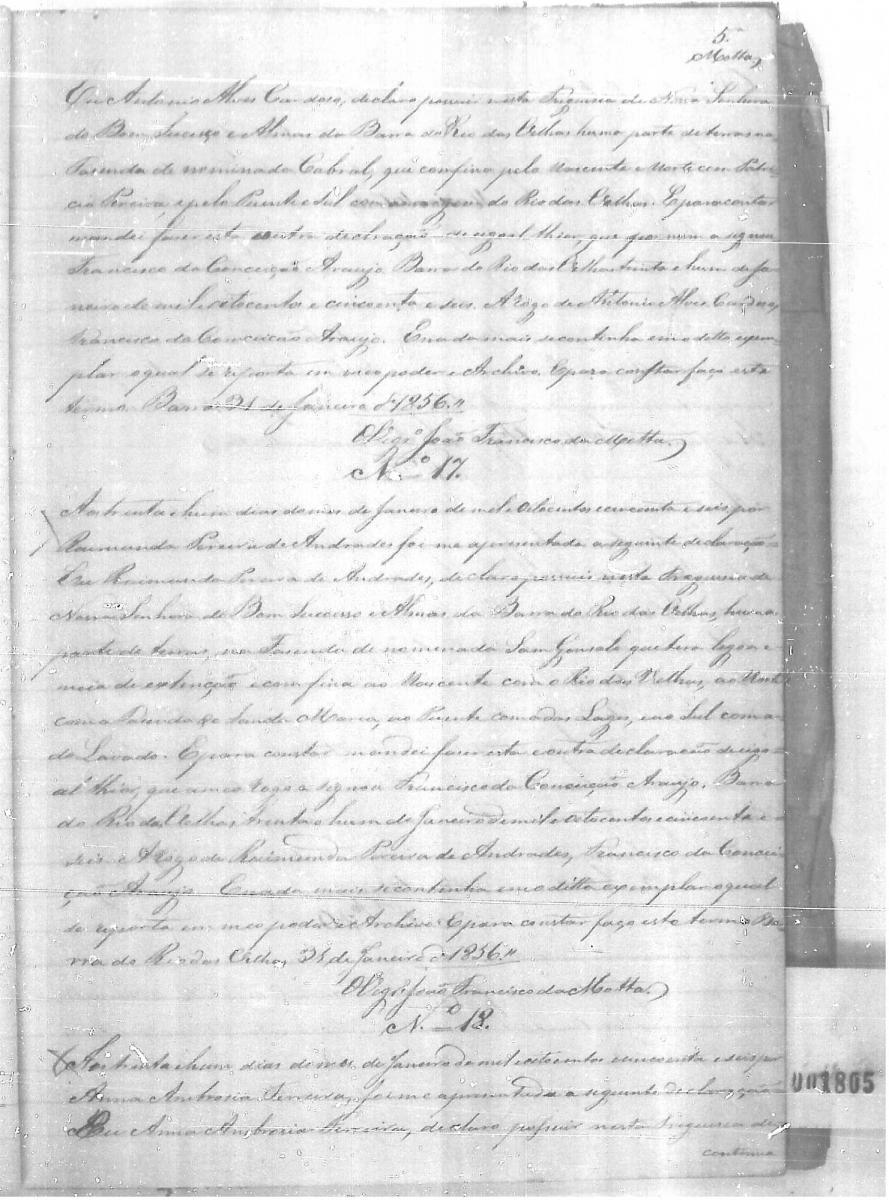 5.
Motta
Eu Antonio Alves Cardoso, declaro possuir nesta Freguesia de Nossa Senhora
do Bom Sucesço e Almas da Barra do Rio das Velhas huma parte de terras na
Fasenda de nominada Cabral, que confina pelo Nascente e Norte com Patri-
cio Pereira, e pelo Puente e Sul com a margem do Rio das Velhas. E para contar
mandei faser esta e outra declaração de igoal thior, que por mim asignou
Francisco da Conceição Araujo. Barra do Rio das Velhas trinta e hum de Ja-
neiro de mil e oitocentos e cincoenta e seis. A rogo de Antonio Alves Cardoso,
Francisco da Conceição Araujo. E nada mais se continha em o ditto exem-
plar o qual se reporta em meo poder e Archivo. E para constar faço este
termo Barra 31 de Janeiro de 1856.
O Vigrº João Francisco da Motta.
N.º 17.
Aos trinta e hum dias do mes de Janeiro de mil e oitocentos e cincoenta e seis por
Raimunda Pereira de Andrades foi me apresentada a seguinte declaração
Eu Raimunda Pereira de Andrades, declaro possuir nesta Freguesia de
Nossa Senhora do Bom Sucesso e Almas da Barra do Rio das Velhas, huma
parte de terras, na Fasenda de nomenada Sam Gonsalo que tem legoa e
meia de extenção e comfina ao Nascente com o Rio das Velhas, ao Norte
com a Fasenda de Santa Maria, ao Puente com a das Lages, e ao Sul com a
do Lavado. E para constar mandei faser esta e outra declaração de igo-
al thior, que a meo rogo asignou Francisco da Conceição Araujo. Barra
do Rio das Velhas trinta e hum de Janeiro de mil e oitocentos e cincoenta e
seis. A Rogo da Raimunda Pereira de Andrades, Francisco da Concei-
ção Araujo. E nada mais se continha em o ditto exemplar o qual
se reporta em meo poder e Archivo. E para constar faço este termo Ba-
rra do Rio das Velhas, 31 de Janeiro de 1856.
O Vigrº João Francisco da Motta.
N.º 18.
Aos trinta e hum dias do mes de Janeiro de mil e oitocentos e cincoenta e seis por
Anna Ambrosia Ferreira, foi me apresentada a seguinte declaração
Eu Anna Ambrosia Ferreira, declaro possuir nesta Freguesia de
continua
001805